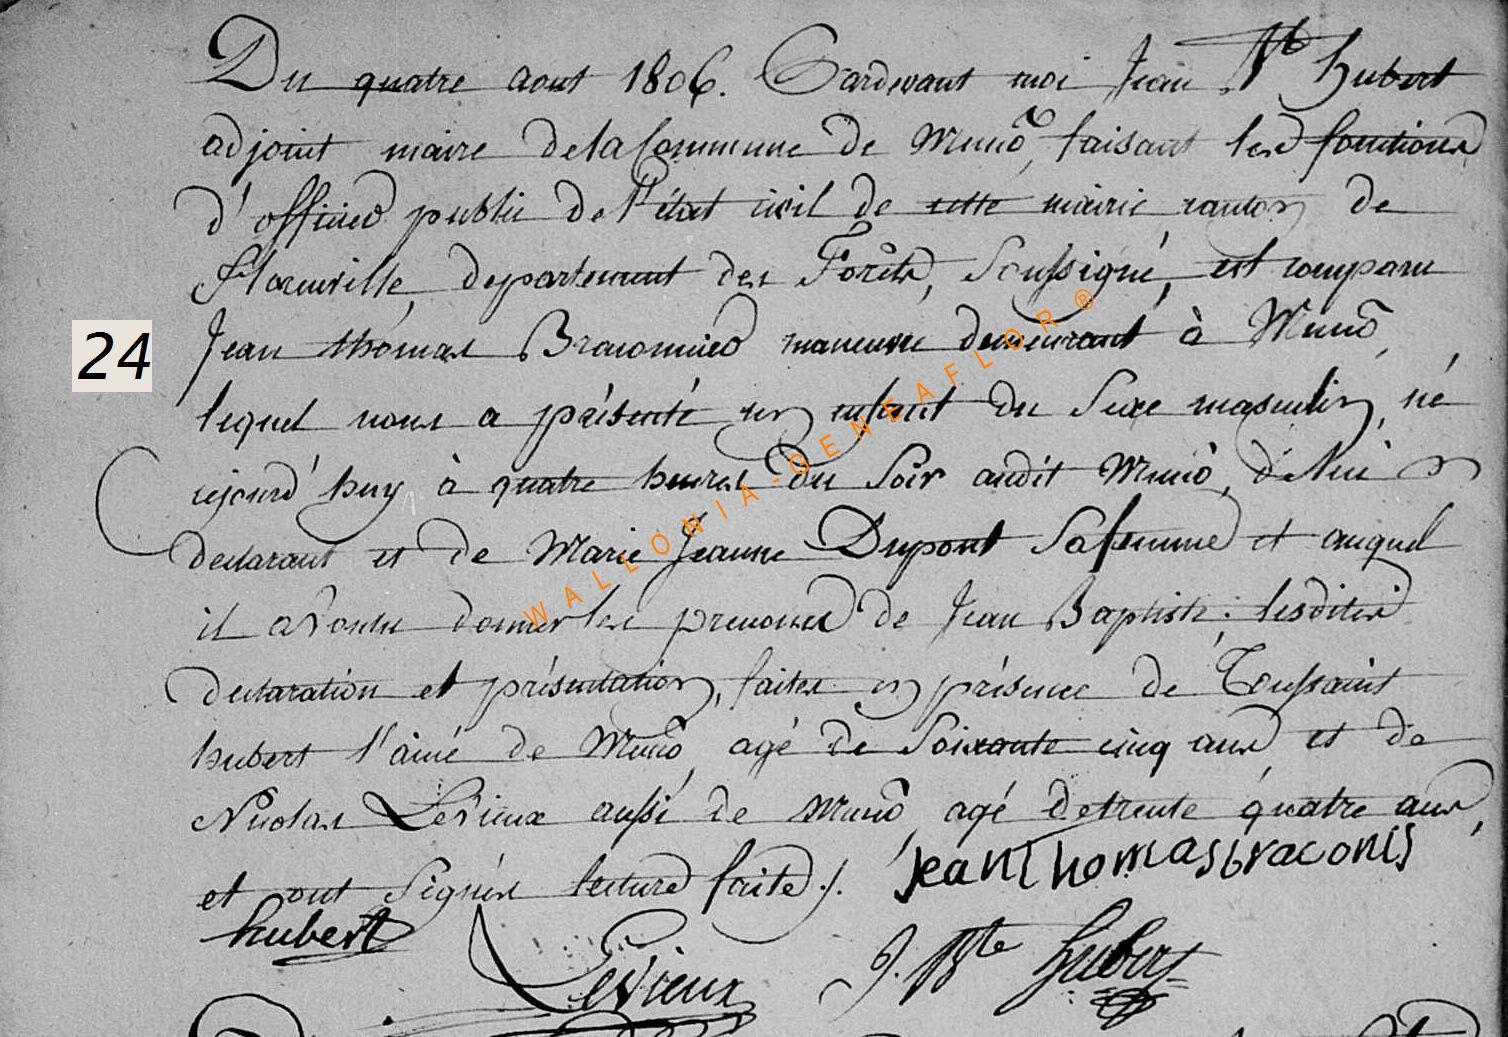 Du quatre aout 1806. Pardevant moi Jean Bte hubert
adjoint maire dela Commune de Muno, faisant les fonctions
d'officier public de l'état civil de cette mairie canton de
Florenville, departement des Forêts, Soussigné, est comparu
24
Jean thomas Braconnier manoeuvre demeurant à Muno,
lequel nous a présenté un enfant du Sexe masculin, né
cejourd'huy à quatre heures du Soir audit Muno, de lui
declarant et de Marie Jeanne Dupont Sa femme et auquel
il a voulu donner les prenoms de Jean Baptiste; lesdites
declaration et présentation, faites en présence de Toussaint
hubert l'ainé de Muno, agé de Soixante cinq ans, et de
Nicolas Levieux aussi de Muno, agé de trente quatre ans,
et ont Signés lecture faite ./. jean Thomas braconis
hubert Levieux J. Bte hubert
WALLONIA-GENEAFLOR®